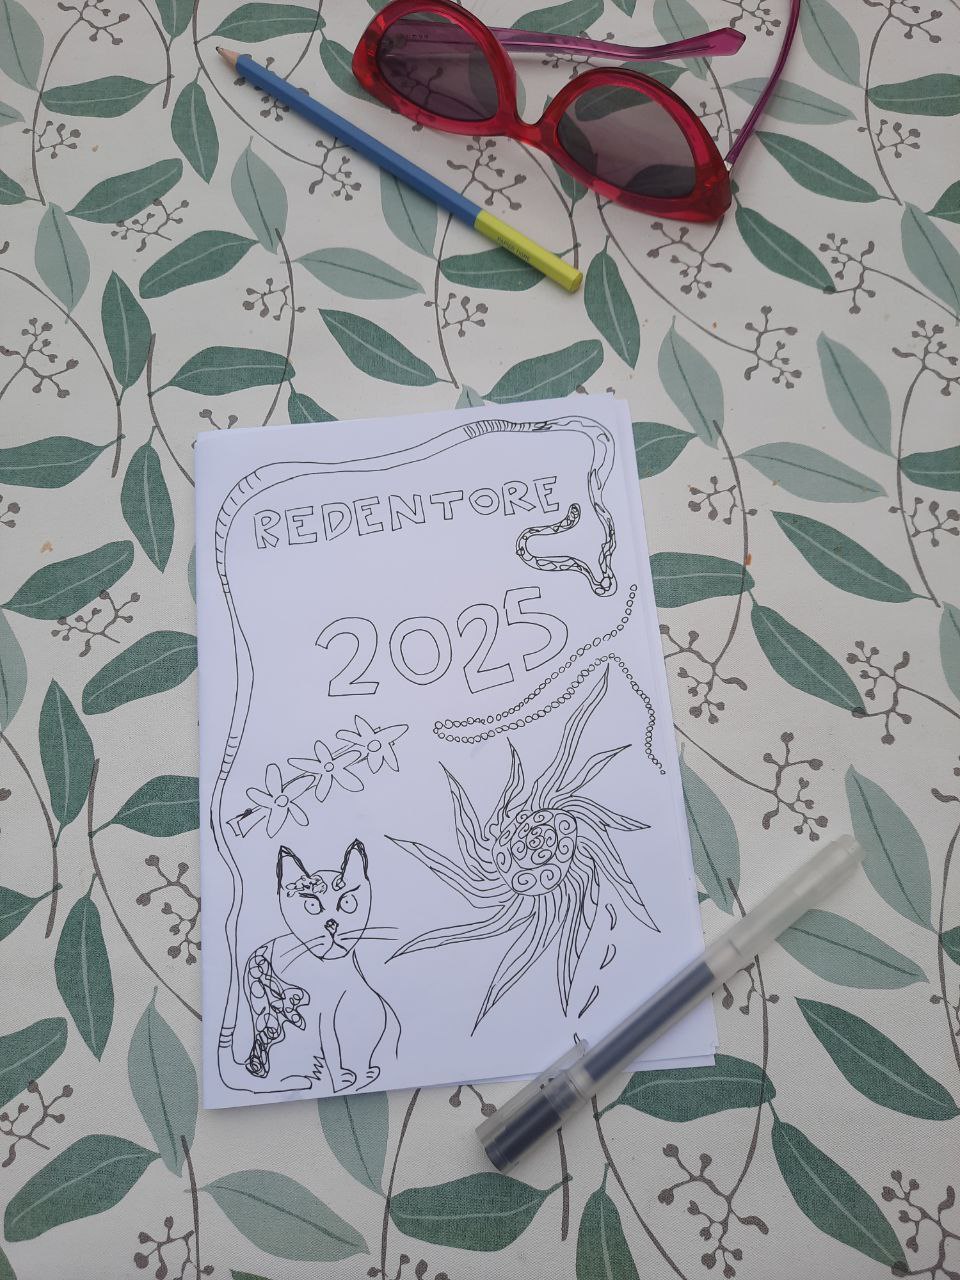 REDENTORE
2025